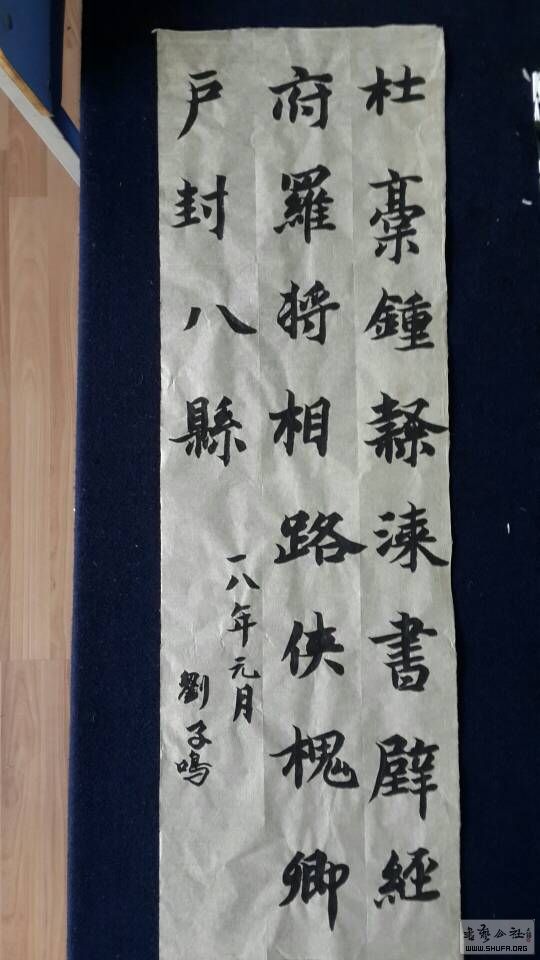 杜稾鍾隸漆書壁經
府羅将相路俠槐卿
户封八縣
一八年元月
劉子鳴
书艺公社
WWW.SHUFA.ORG